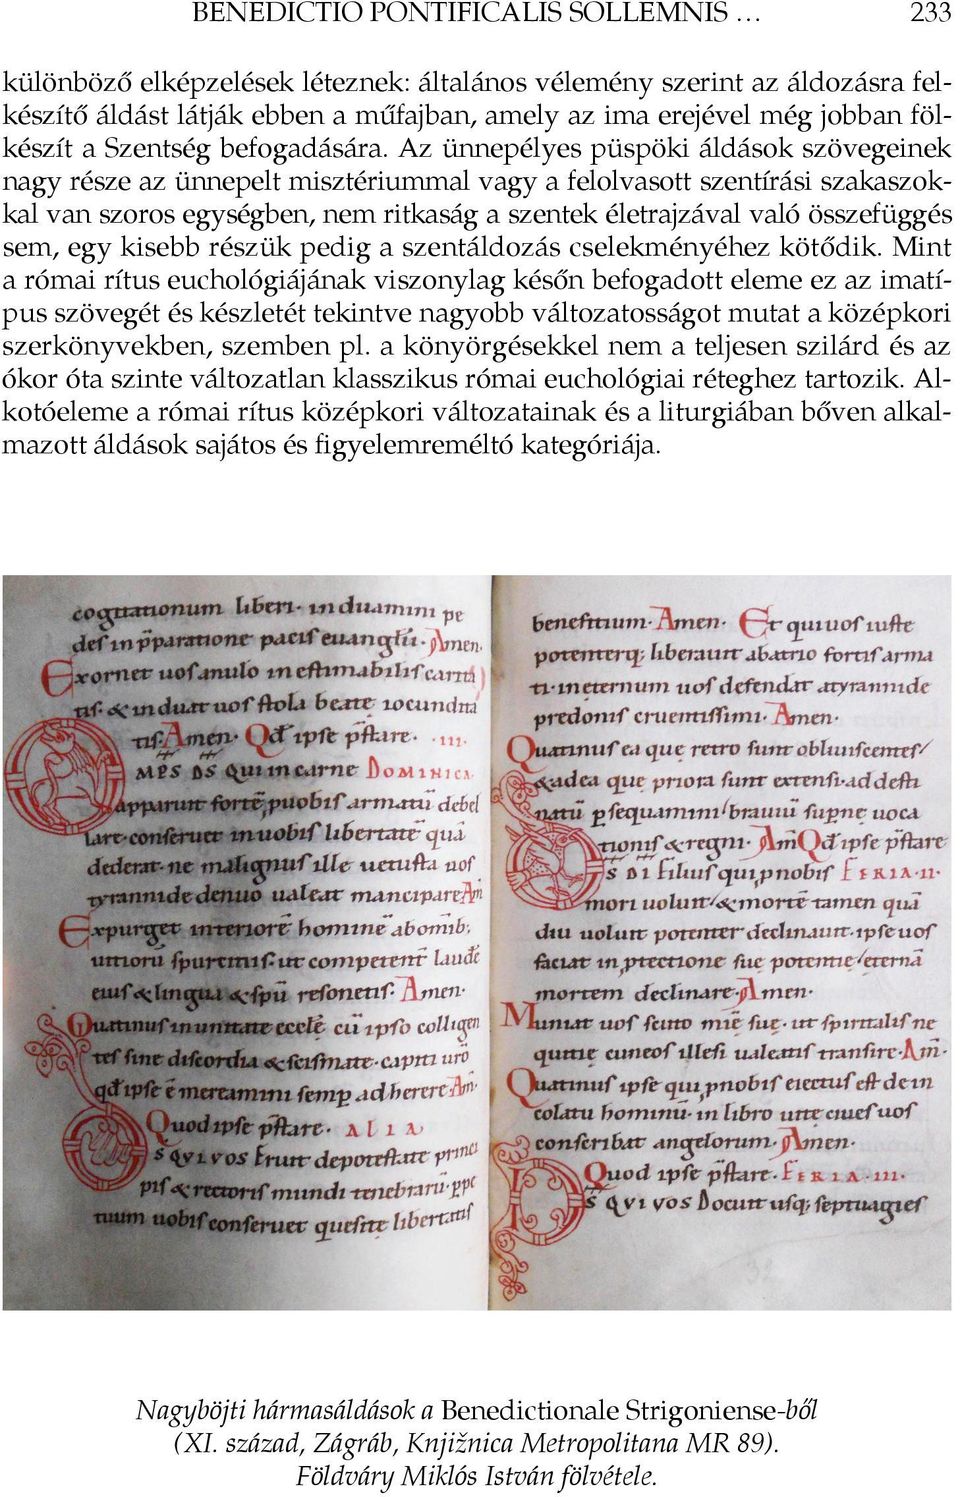 BENEDICTIO PONTIFICALIS SOLLEMNIS … 233
különböző elképzelések léteznek: általános vélemény szerint az áldozásra fel-
készítő áldást látják ebben a műfajban, amely az ima erejével még jobban föl-
készít a Szentség befogadására. Az ünnepélyes püspöki áldások szövegeinek
nagy része az ünnepelt misztériummal vagy a felolvasott szentírási szakaszok-
kal van szoros egységben, nem ritkaság a szentek életrajzával való összefüggés
sem, egy kisebb részük pedig a szentáldozás cselekményéhez kötődik. Mint
a római rítus euchológiájának viszonylag későn befogadott eleme ez az imatí-
pus szövegét és készletét tekintve nagyobb változatosságot mutat a középkori
szerkönyvekben, szemben pl. a könyörgésekkel nem a teljesen szilárd és az
ókor óta szinte változatlan klasszikus római euchológiai réteghez tartozik. Al-
kotóeleme a római rítus középkori változatainak és a liturgiában bőven alkal-
mazott áldások sajátos és figyelemreméltó kategóriája.
cogitationum liberi· induamini pe
deſ in p̄paratione paciſ euanglii· Amen.
Exornet uoſ anulo ineſtimabiliſ carita
tiſ· & induat uoſ ſtola beatę iocundita
tiſ· Amen· Qd̄ ipſe p̄ſtare· ·III·
OMPS DS QUI IN CARNE DOMINICA
apparuit fortę, p uobiſ armatū debel
lare· conſeruet in uobiſ libertatē quā
dederat· ne malignuſ ille uetuſta uoſ
tyrannide denuo ualeat mancipare Am̄
Expurget interiorē hominē ab omīb;
uitiorū ſpurcitiiſ· ut competent̄ laudē
eiuſ & lingua & ſpū reſonetiſ· Amen·
Quatinuſ in unitate eccłę cū ipſo colligen
teſ ſine diſcordia & ſciſmate· capiti urō
qd̄ ipſe ē mereamini ſemp adherere Am̄·
Quod ipſe p̄ſtare· ALIA
DS QVI VOS Eruit de poteſtate princi
piſ & rectoriſ mundi tenebrarū· ppe
tuum uobiſ conſeruet queſitę libertatiſ
benefitium· Amen· Et qui uoſ iuſte
potenterq; liberauit ab atrio fortiſ arma
ti· in eternum uoſ defendat a tyrannide
predoniſ cruentiſſimi· Amen·
Quatinuſ ea quę retro ſunt obliuiſcenteſ/
& ad ea que priora ſunt extenſi· ad deſti
natū pſequamini/ brauiū ſupnę uoca
tioniſ & regni· Am̄ Qd̄ ipſe p̄ſtare
DS DI Filiuſ qui p nobiſ FERIA·II·
mori uoluit/ & mortē tamen quā
diu uoluit potenter declinauit· ipſe uoſ
faciat in ptectione ſuę potentię/ eternā
mortem declinare· Amen·
Muniat uoſ ſcuto mīę ſuę· ut ſpiritaliſ ne
quitię cuneoſ illeſi ualeatiſ tranſire· Am̄·
Quatinuſ ipſe qui p nobiſ eiectuſ eſt de in
colatu hominū· in libro uitę ciueſ uoſ
conſcribat angelorum· Amen·
Quod ipſe p̄ſtare· FERIA·III·
DS QVI VOS Docuit uſq; ſeptuagieſ
Nagyböjti hármasáldások a Benedictionale Strigoniense-ből
(XI. század, Zágráb, Knjižnica Metropolitana MR 89).
Földváry Miklós István fölvétele.